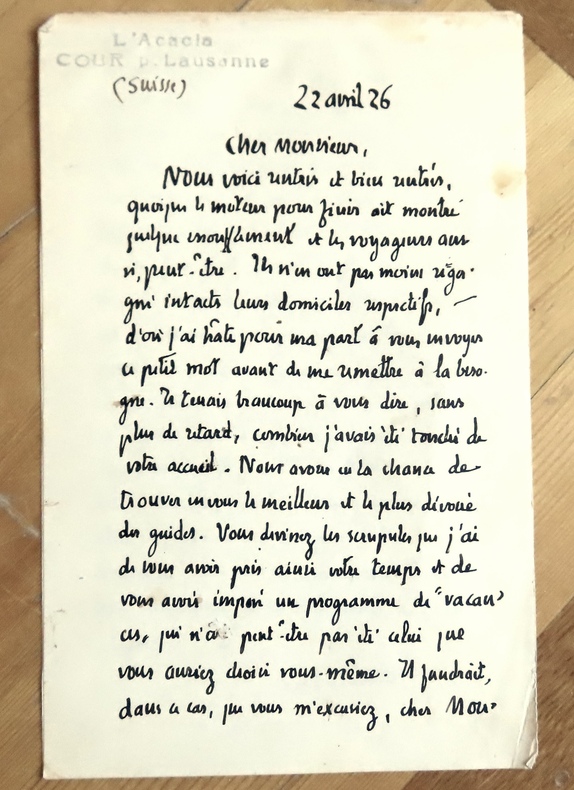 L'Acacia
COUR p. Lausanne
(Suisse)
22 avril 26
Cher Monsieur,
Nous voici rentrés et bien rentrés,
quoique le moteur pour finir ait montré
quelque essoufflement et les voyageurs aus-
si, peut-être. Ils n'en ont pas moins rega-
gné intacts leurs domiciles respectifs, —
d'où j'ai hâte pour ma part à vous envoyer
ce petit mot avant de me remettre à la beso-
gne. Je tenais beaucoup à vous dire, sans
plus de retard, combien j'avais été touché de
votre accueil. Nous avons eu la chance de
trouver en vous le meilleur et le plus dévoué
des guides. Vous devinez les scrupules que j'ai
de vous avoir pris ainsi votre temps et de
vous avoir imposé un programme de "vacan-
ces, qui n'a peut-être pas été celui que
vous auriez choisi vous-même. Il faudrait,
dans ce cas, que vous m'excusiez, cher Mon-